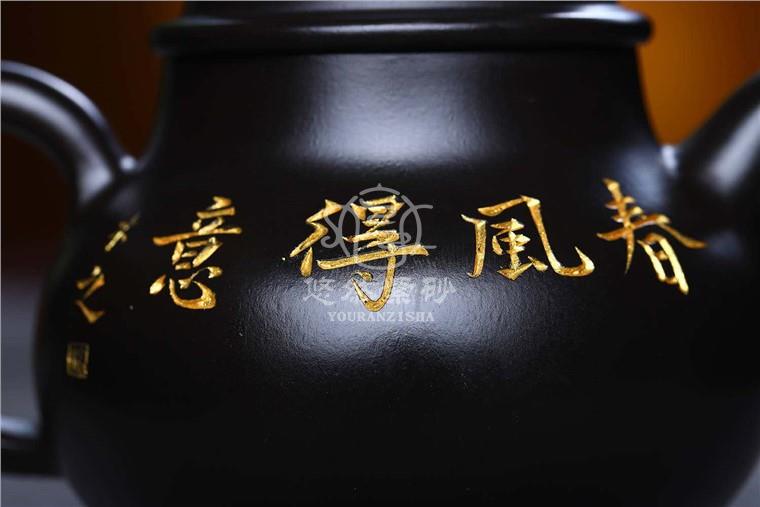 春風得意
之
悠然紫砂
YOURANZISHA